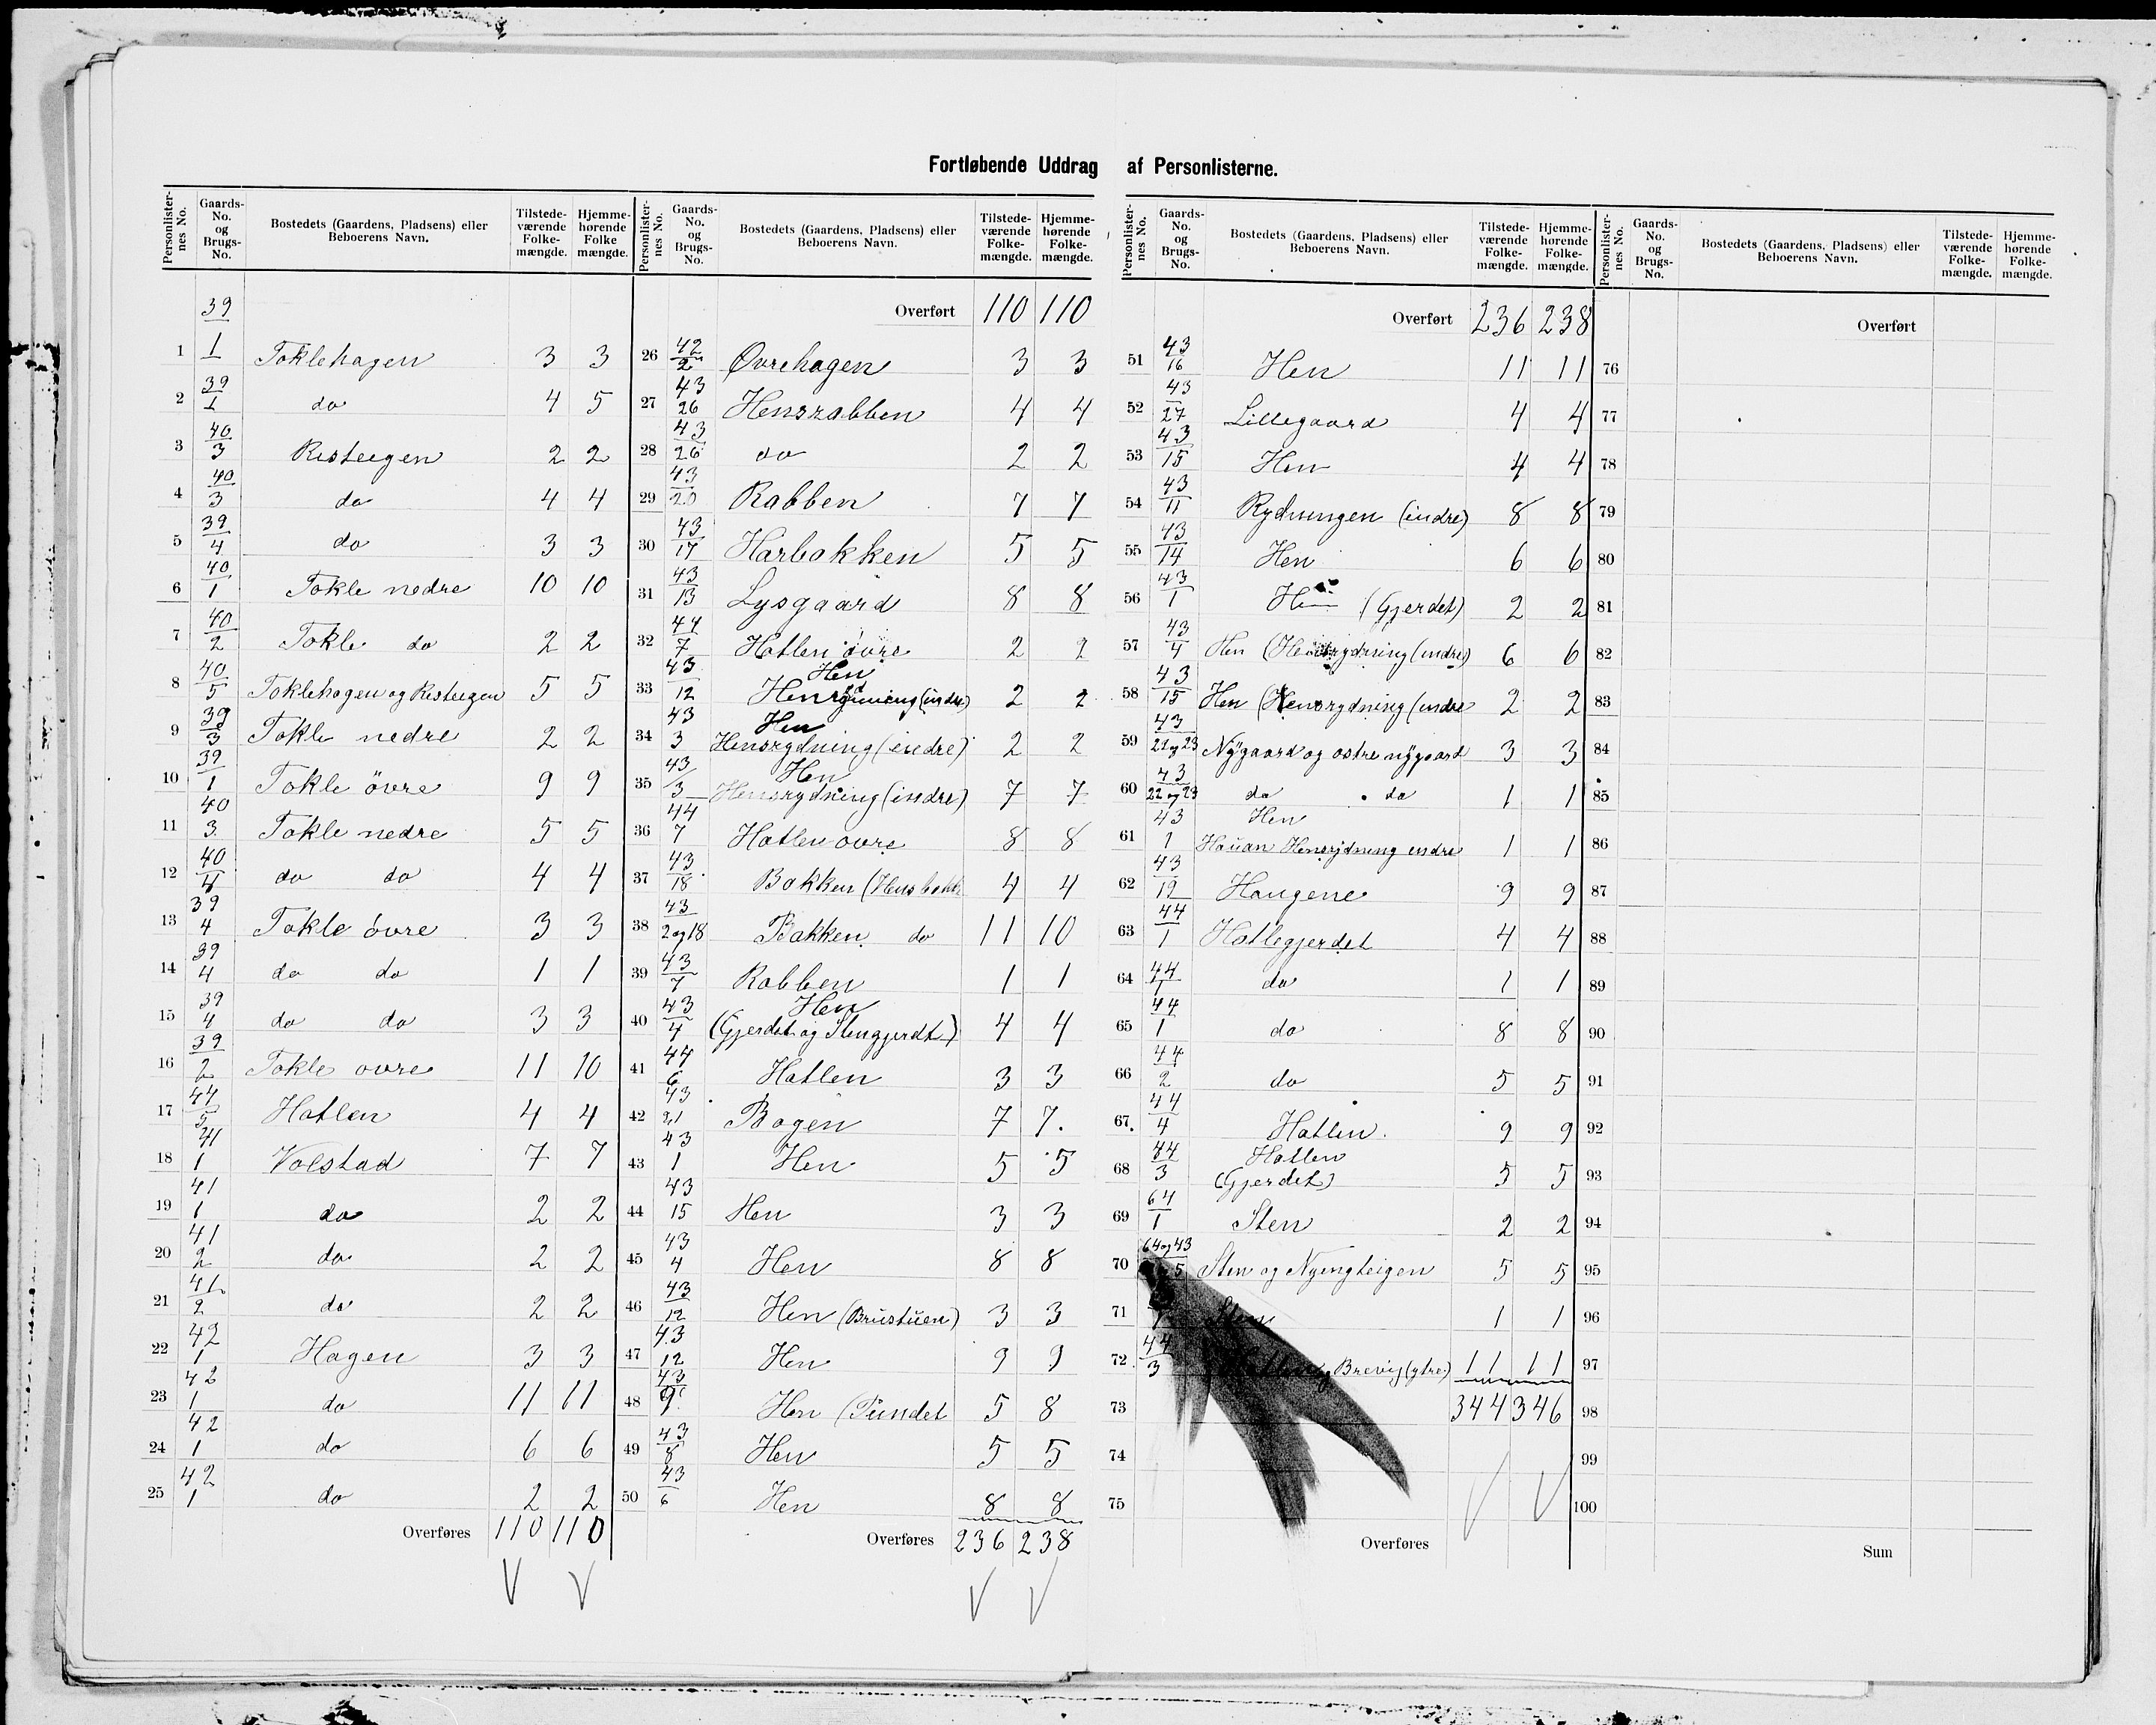 Fortløbende Uddrag af Personlisterne.
Personlister-nes No. Gaards-No. og Brugs-No. Bostedets (Gaardens, Pladsens) eller Beboerens Navn. Tilstede-værende Folke-mængde. Hjemme-hørende Folke mængde.
1 39/1 Toklehagen 3 3
2 39/1 do 4 5
3 40/3 Risteigen 2 2
4 40/3 do 4 4
5 39/4 do 3 3
6 40/1 Tokle nedre 10 10
7 40/2 Tokle do 2 2
8 40/5 Toklehagen og Risteigen 5 5
9 39/3 Tokle nedre 2 2
10 39/1 Tokle övre 9 9
11 40/3 Tokle nedre 5 5
12 40/4 do do 4 4
13 39/4 Tokle övre 3 3
14 39/4 do do 1 1
15 39/4 do do 3 3
16 39/2 Tokle ovre 11 10
17 44/5 Hatlen 4 4
18 41/1 Volstad 7 7
19 41/1 do 2 2
20 41/2 do 2 2
21 41/2 do 2 2
22 42/1 Hagen 3 3
23 42/1 do 11 11
24 42/1 do 6 6
25 42/1 do 2 2
Overføres 110 110
Personlister-nes No. Gaards-No. og Brugs-No. Bostedets (Gaardens, Pladsens) eller Beboerens Navn. Tilstede-værende Folke-mængde. Hjemme-hørende Folke-mængde.
Overført 110 110
26 42/2 Øvrehagen 3 3
27 43/26 Hensrabben 4 4
28 43/26 do 2 2
29 43/20 Rabben 7 7
30 43/17 Harbakken 5 5
31 43/13 Lysgaard 8 8
32 44/7 Hatlen övre 2 2
33 43/12 Hen
(indre) 2 2
34 43/3 Hen
Hensrydning (indre) 2 2
35 43/3 Hen
Hensrydning (indre) 7 7
36 44/7 Hatlen ovre 8 8
37 43/18 Bakken (Hensbakk 4 4
38 43/2 og 18 Bakken do 11 10
39 43/7 Rabben 1 1
40 43/4 Hen
(Gjerdet og Stengjerdt) 4 4
41 44/6 Hatlen 3 3
42 43/21 Bogen 7 7.
43 43/1 Hen 5 5
44 43/15 Hen 3 3
45 43/4 Hen 8 8
46 43/12 Hen (Brustuen) 3 3
47 43/12 Hen 9 9
48 43/9 Hen (Tundet 5 8
49 43/8 Hen 5 5
50 43/6 Hen 8 8
Overføres 236 238
Personlister-nes No. Gaards-No. og Brugs-No. Bostedets (Gaardens, Pladsens) eller Beboerens Navn. Tilstede-værende Folke-mængde. Hjemme-hørende Folke-mængde.
Overført 236 238
51 43/16 Hen 11 11
52 43/27 Lillegaard 4 4
53 43/15 Hen 4 4
54 43/11 Rydningen (indre) 8 8
55 43/14 Hen 6 6
56 43/1 Hen (Gjerdet) 2 2
57 43/4 Hen (Hensrydning (indre) 6 6
58 43/15 Hen (Hensrydning (indre 2 2
59 43/21 og 23 Nygaard og ostre nygaard 3 3
60 43/22 og 23 do do 1 1
61 43/1 Hen
Hauan Hensrydning indre 1 1
62 43/19 Haugene 9 9
63 44/1 Hatlegjerdet 4 4
64 44/1 do 1 1
65 44/1 do 8 8
66 44/2 do 5 5
67. 44/4 Hatlen. 9 9
68 44/3 Hatlen
(Gjerdet) 5 5
69 64/1 Sten 2 2
70 64 og 43 5 Sten og Nyengteigen 5 5
71 Sten 1 1
72 44/3 Brevig (ytre) 11 11
73 344 346
74
75
Overføres
Personlister-nes No. Gaards-No. og Brugs-No. Bostedets (Gaardens, Pladsens) eller Beboerens Navn. Tilstede-værende Folke-mængde. Hjemme-hørende Folke-mængde.
Overført
76
77
78
79
80
81
82
83
84
85
86
87
88
89
90
91
92
93
94
95
96
97
98
99
100
Sum